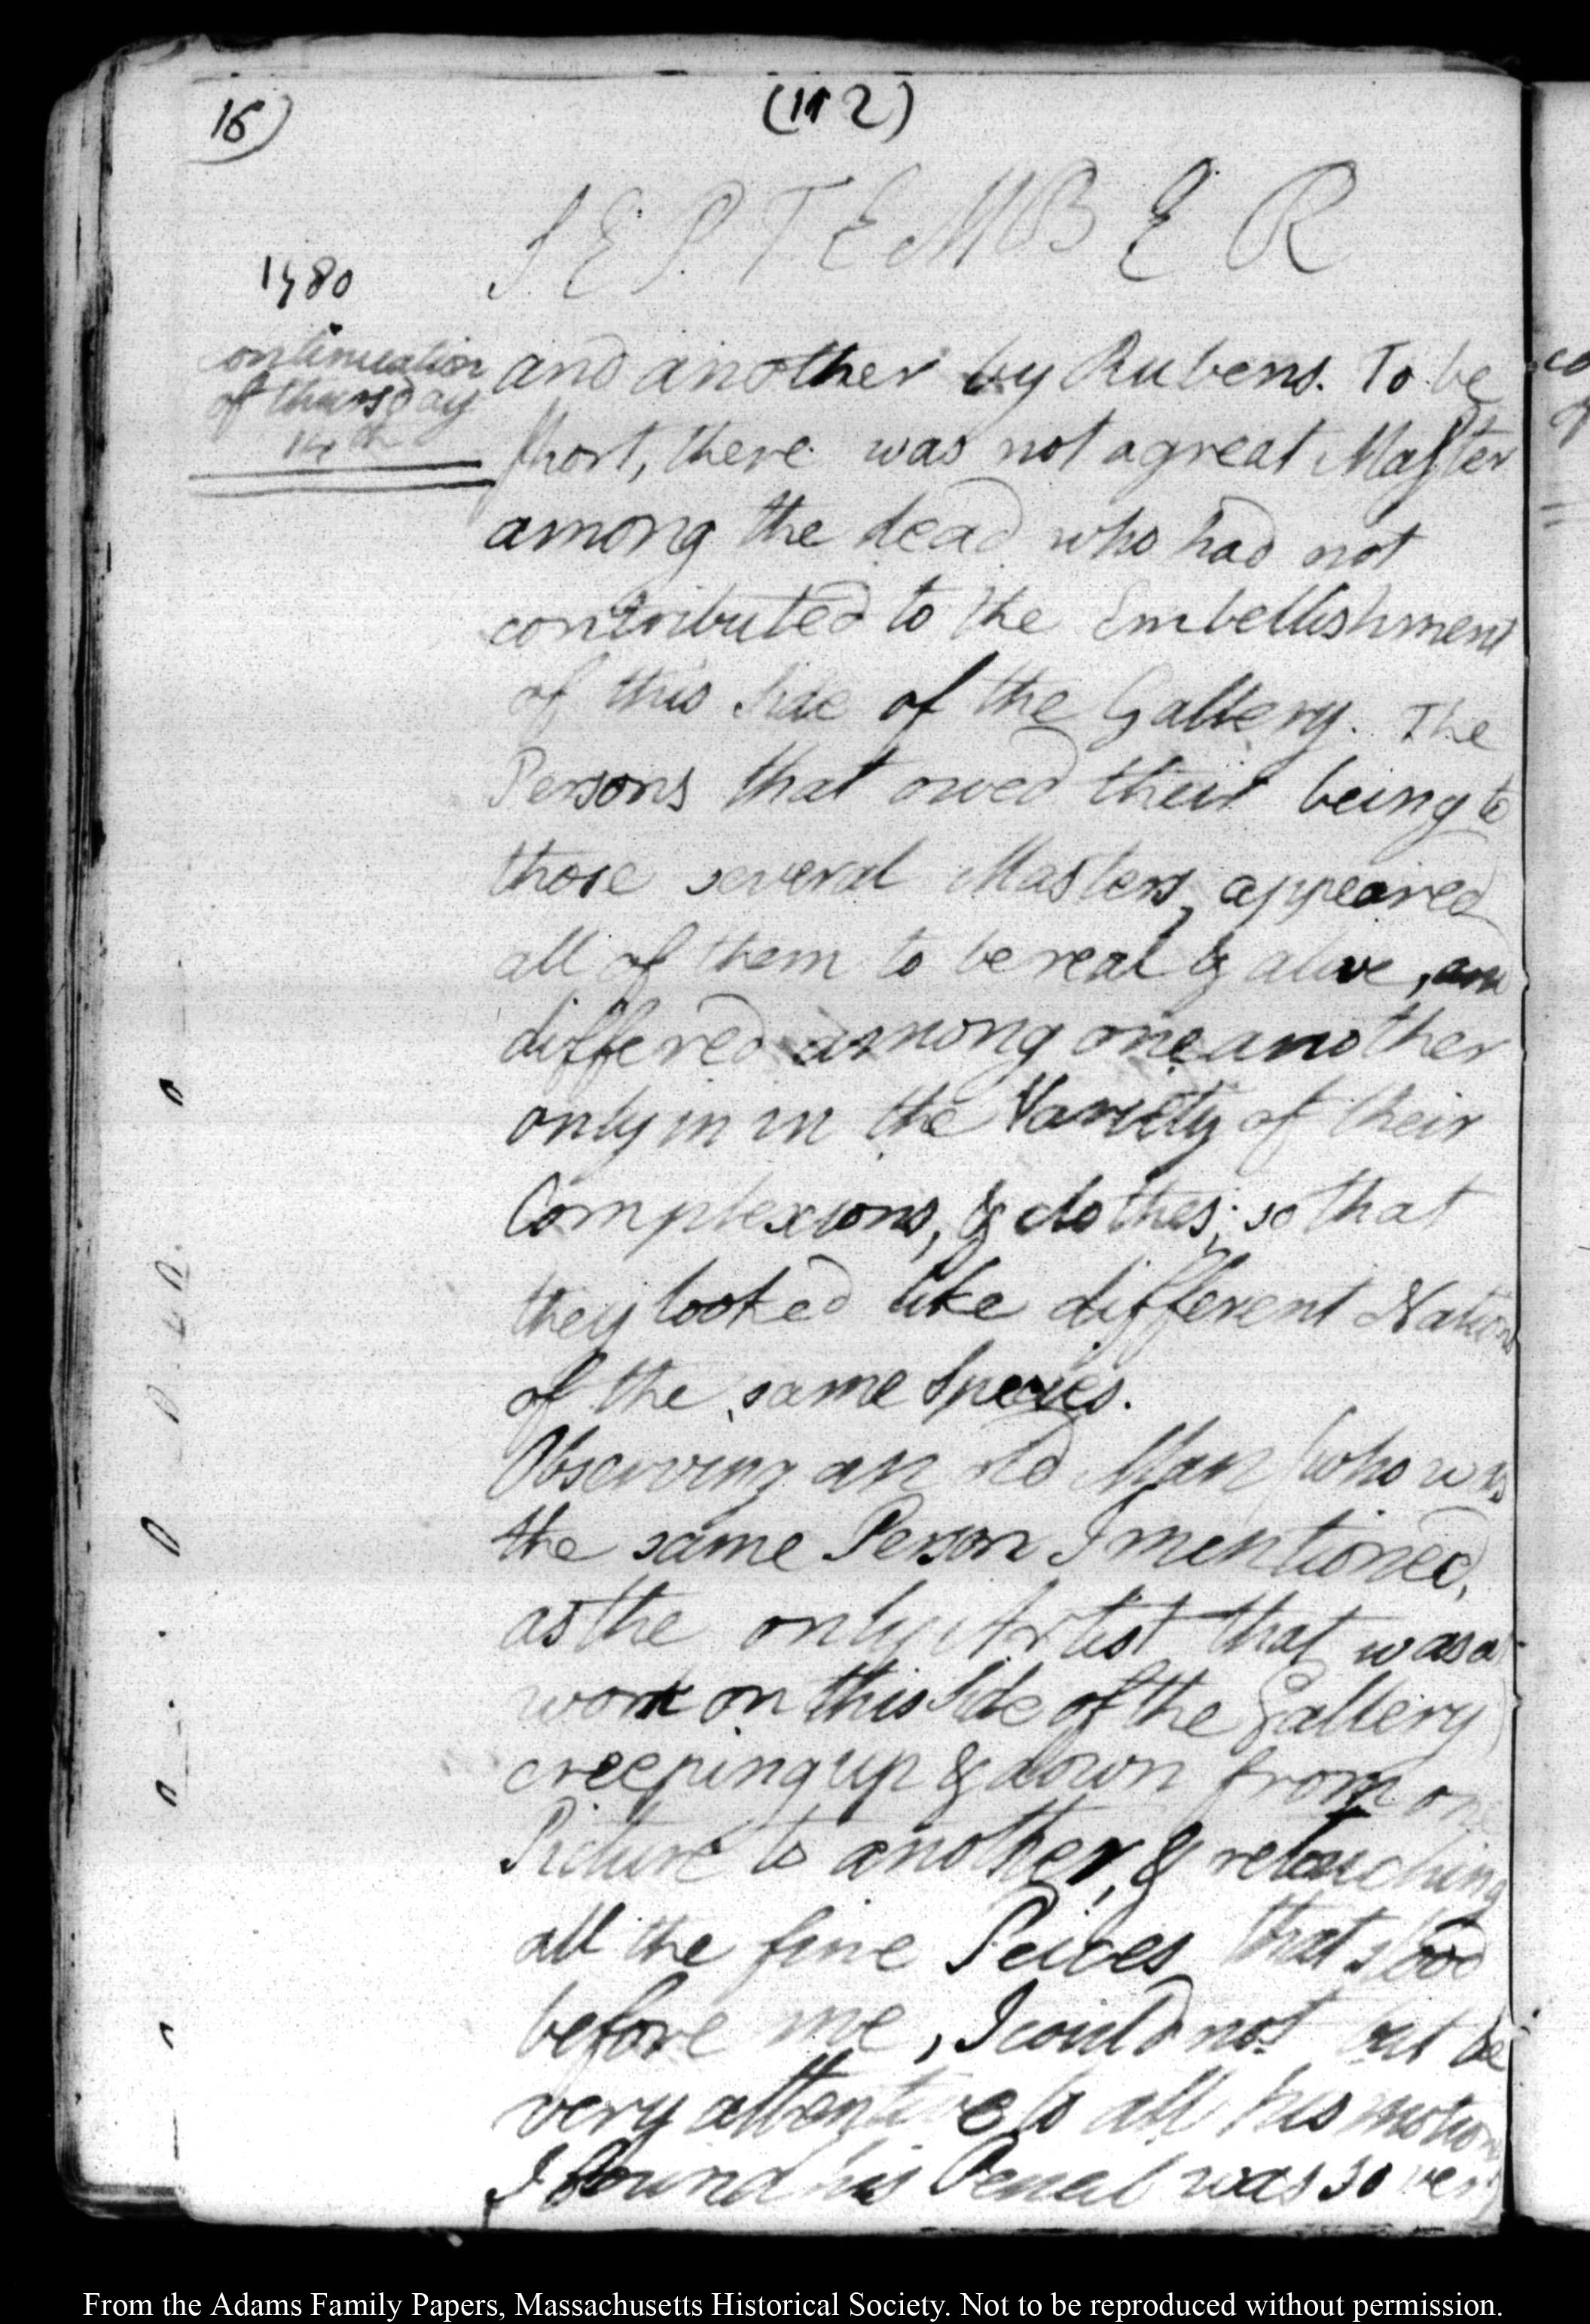 16)
(112)
SEPTEMBER
1780
ontinuation
of thursday
14th
and another by Rubens. To be
short, there was not a great Master
among the dead who had not
contributed to the Embellishment
of this side of the Gallery. The
Persons that owed their being to
those several Masters, appeared
all of them to be real & alive, and
differed among one another
only in in the Variety of their
Complexions, & clothes; so that
they looked like different Nations
of the same Species.
Observing an old Man (who was
the same Person I mentioned,
as the only Artist that was at
work on this side of the Gallery)
creeping up & down from one
Picture to another, & retouching
all the fine Peices that stood
before me, I could not but be
very attentive to all his motions
I found his Pencil was so very
From the Adams Family Papers, Massachusetts Historical Society. Not to be reproduced without permission.